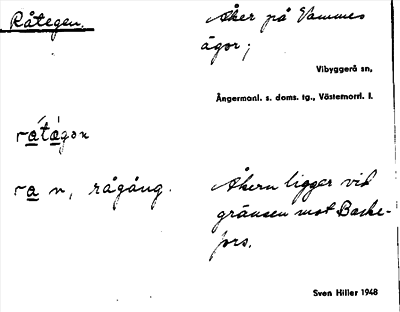 Råtegen.
Åker på Vammes
ägor;
Vibyggerå sn,
Ångermanl. s. doms. tg., Västernorrl. l.
ra n, rågång.
Åkern ligger vid
gränsen mot Baske-
fors.
Sven Hiller 1948